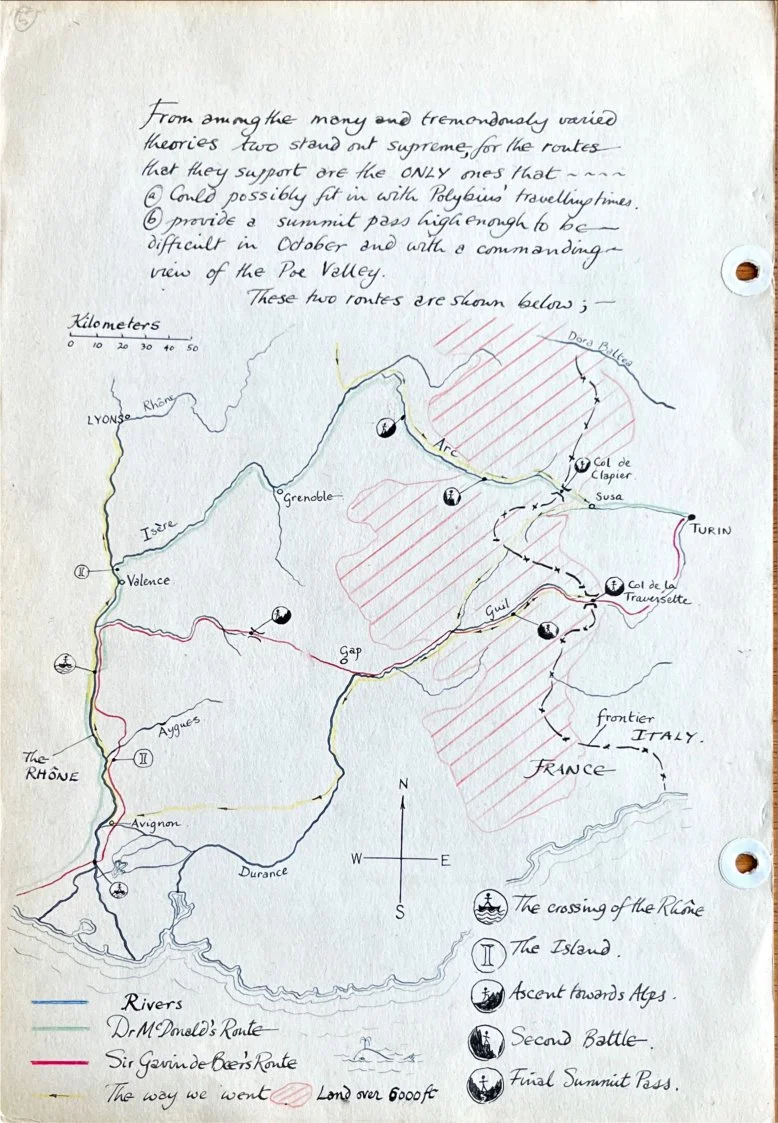 5
From among the many and tremendously varied
theories two stand out supreme, for the routes
that they support are the ONLY ones that ~ ~ ~ ~
ⓐ Could possibly fit in with Polybius' travelling times.
ⓑ provide a summit pass high enough to be
difficult in October and with a commanding
view of the Poe Valley.
These two routes are shown below ; —
Kilometers
0 10 20 30 40 50
Dora Baltea
Rhône
LYONS
Arc
Col de
Clapier
Grenoble
Susa
Isère
TURIN
II
Valence
Col de la
Traversette
Guil
Gap
Aygues
frontier
ITALY.
The
RHÔNE
II
FRANCE
N
Avignon
W E
Durance
S
The crossing of the Rhône
II The Island.
Ascent towards Alps.
Second Battle.
Final Summit Pass.
Rivers
Dr McDonald's Route
Sir Gavin de Beer's Route
The way we went
Land over 6000 ft